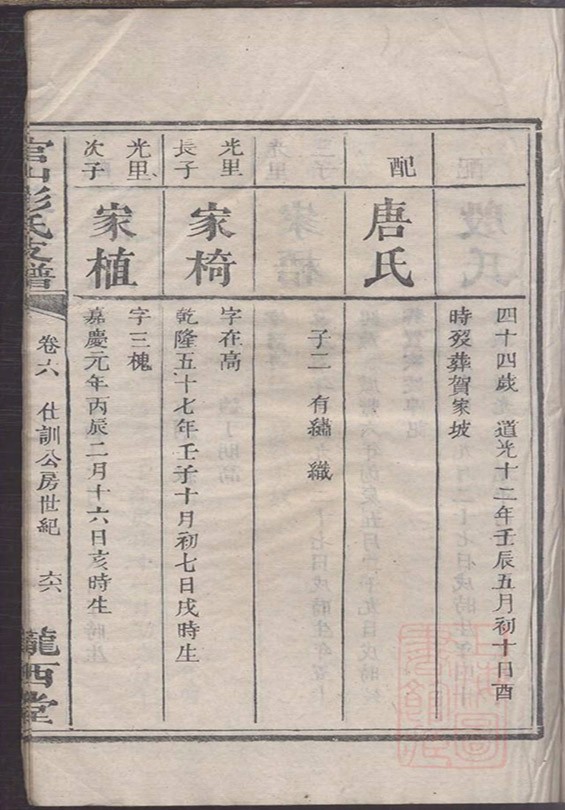 四十四歲 道光十二年壬辰五月初十日酉
時歿葬賀家坡
配
唐氏
子二 有繡 織
光里
長子
家椅
字在高
乾隆五十七年壬子十月初七日戌時生
光里
次子
家植
字三槐
嘉慶元年丙辰二月十六日亥時生
官山彭氏支譜 卷六 仕訓公房世紀 六六 隴西堂